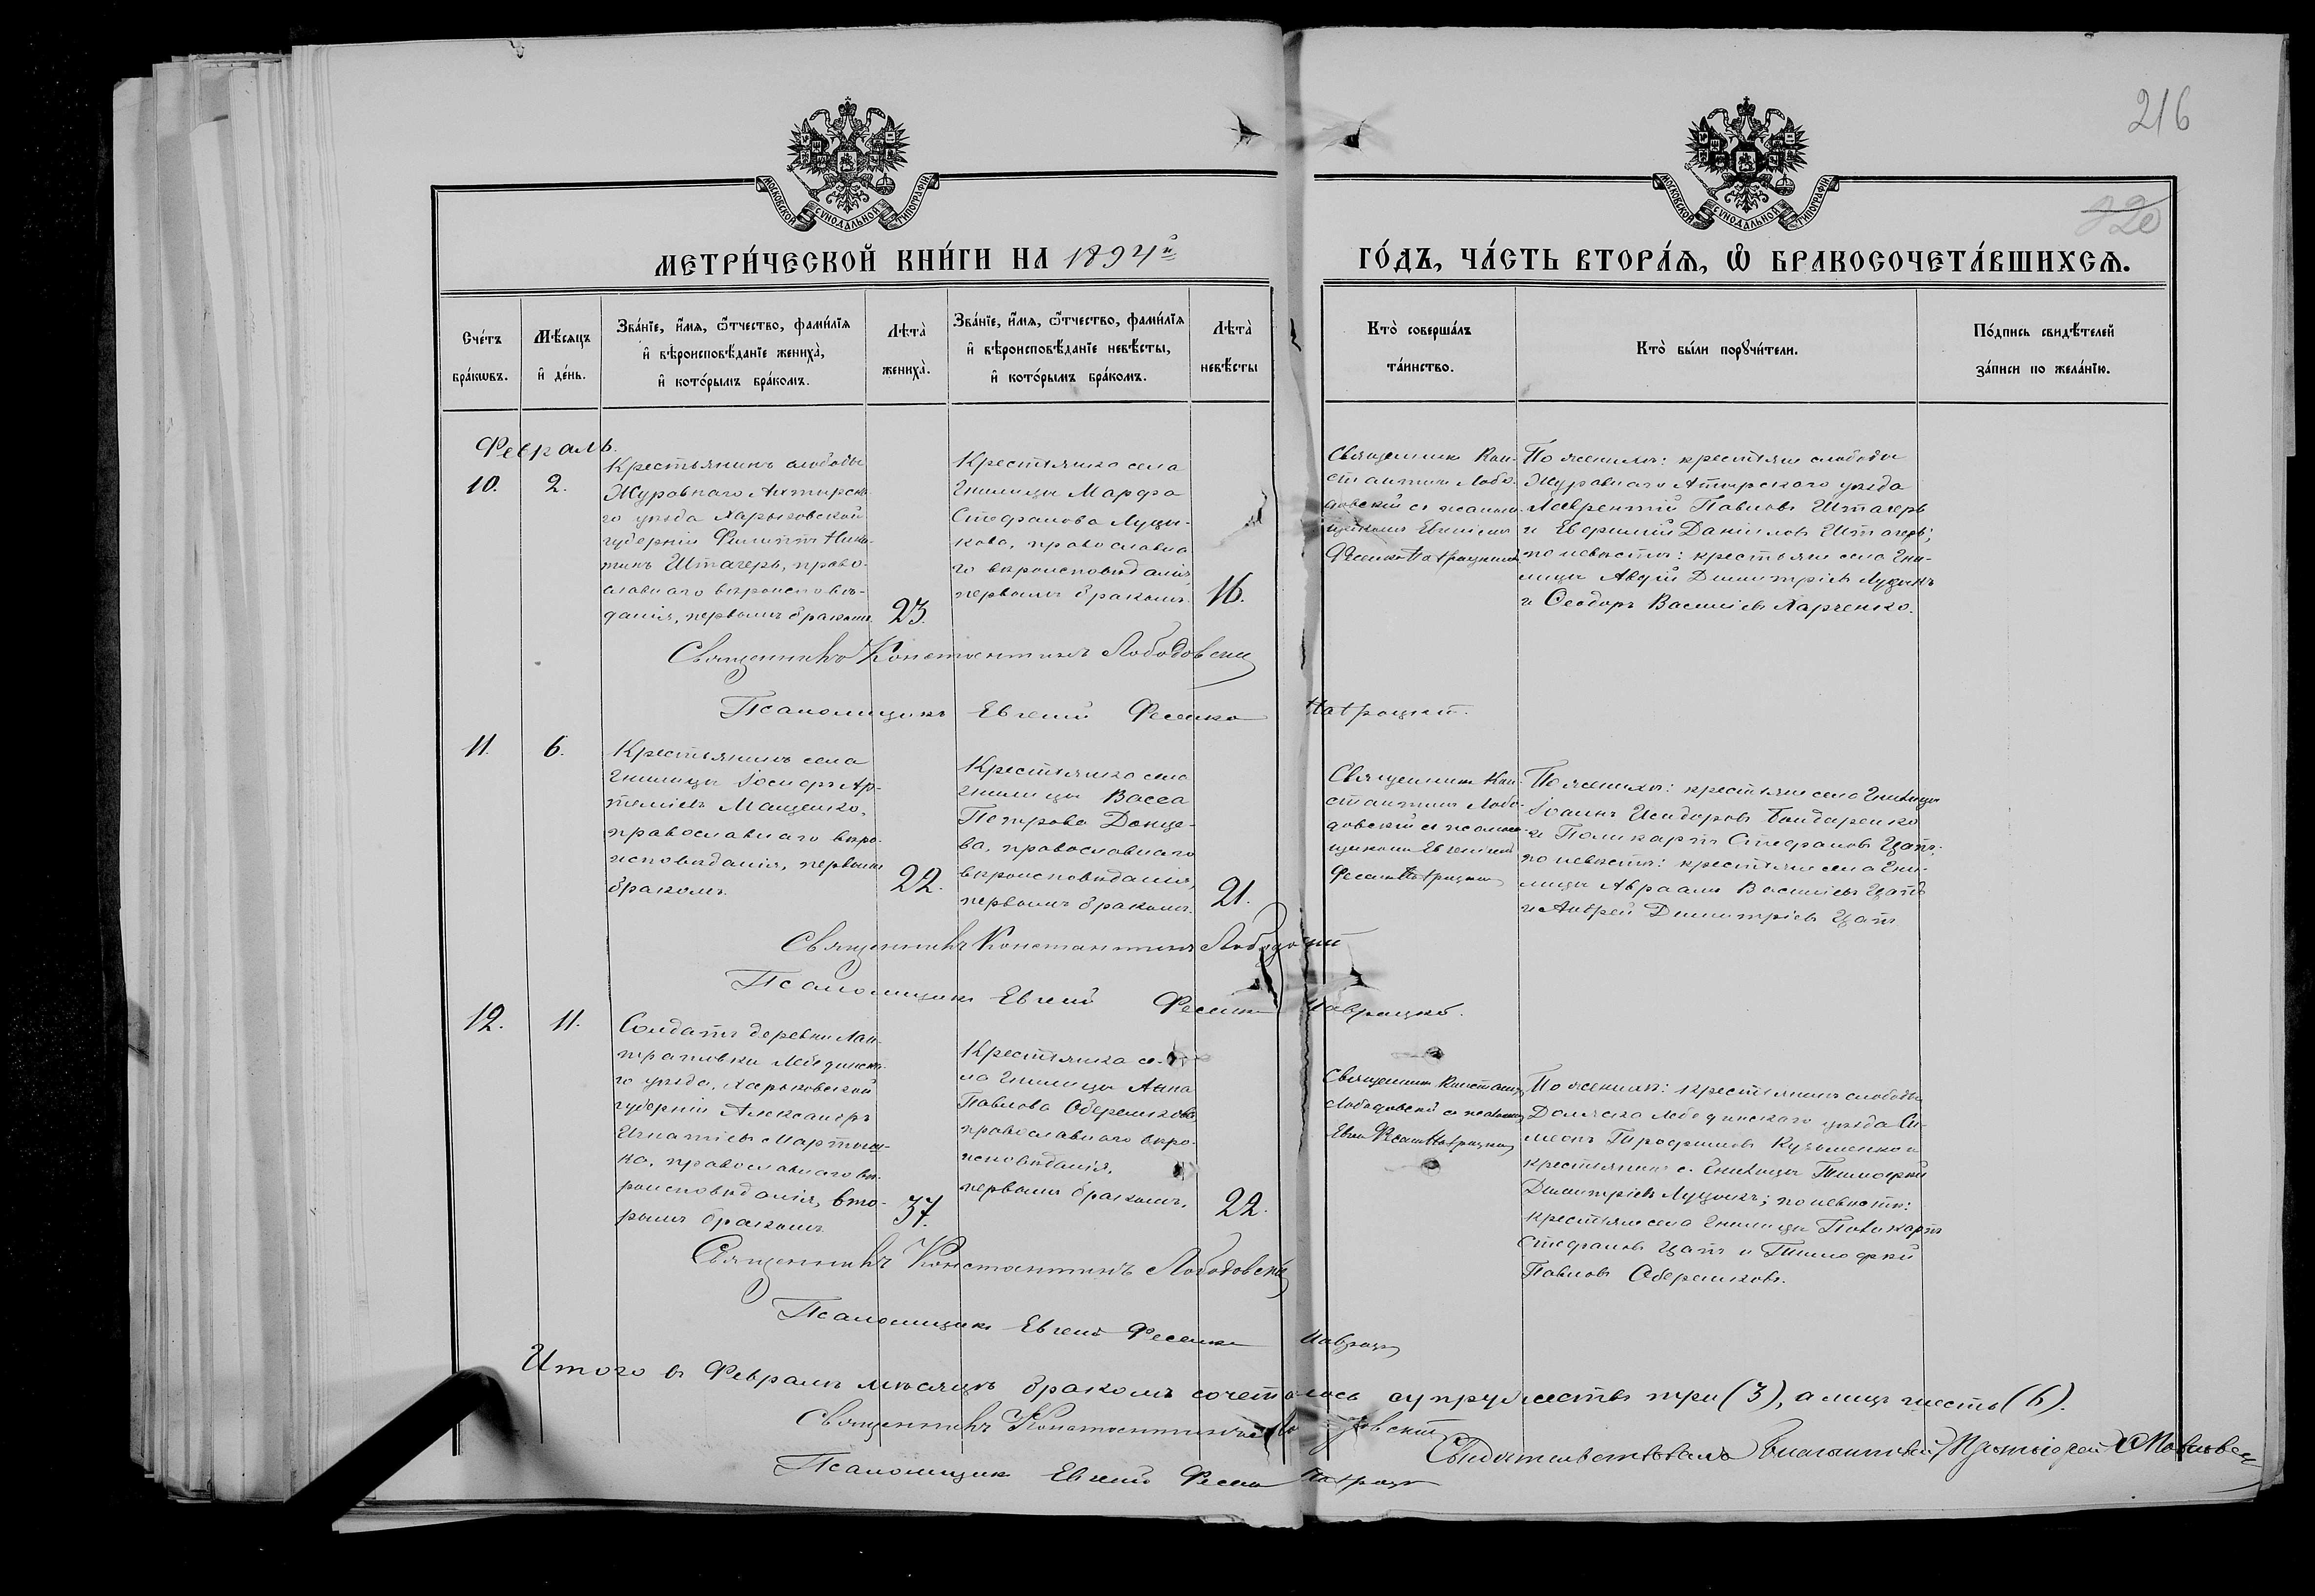 216
220
МОСКОВСКОЙ СѴНОДАЛЬНОЙ ТИПОГРАФІИ
МОСКОВСКОЙ СѴНОДАЛЬНОЙ ТИПОГРАФІИ
МЕТРИ́ЧЕСКОЙ КНИ́ГИ НА 1894й
ГО́ДЪ, ЧА́СТЬ ВТОРА́Ѧ, Ѽ БРАКОСОЧЕТА́ВШИХСѦ.
Сче́тъ
бра́кѡвъ.
Мѣ́сѧцъ
и҆ де́нь.
Зва́нїе, и҆́мѧ, ѻ҆́тчество, фами́лїѧ
и҆ вѣроисповѣ́данїе жениха̀,
и҆ кото́рымъ бра́комъ.
Лѣта̀
жениха̀.
Зва́нїе, и҆́мѧ, ѻ҆́тчество, фами́лїѧ
и҆ вѣроисповѣ́данїе невѣ́сты,
и҆ кото́рымъ бра́комъ.
Лѣта̀
невѣ́сты
Кто̀ соверша́лъ
та́инство.
Кто̀ бы́ли порꙋчи́тели.
По́дпись свидѣ́телей
за́писи по жела́нїю.
Февраль.
10.
2.
Крестьянинъ слободы
Журавнаго Ахтырска-
го уѣзда Харьковской
губерніи Филиппъ Ники-
тинъ Штагеръ, право-
славнаго вѣроисповѣ-
данія, первымъ бракомъ
23.
Крестьянка села
Гнилицы Марфа
Стефанова Луци-
кова, православна
го вѣроисповѣданія,
первымъ бракомъ.
16.
Священникъ Кон-
стантинъ Лобо-
довскій съ псалом-
щикомъ Евгеніемъ
Фесенко Навроцкимъ
По женихѣ: крестьяне слободы
Журавнаго Ахтырскаго уѣзда
Лаврентій Павловъ Штагеръ
и Евфимій Даніиловъ Штагеръ;
по невѣстѣ: крестьяне села Гни-
лицы Авдій Димитріевъ Луцикъ
и Ѳеодоръ Василіевъ Харченко.
Священникъ Константинъ Лободовскій
Псаломщикъ Евгеній Фесенко Навроцкій.
11.
6.
Крестьянинъ села
Гнилицы Іосифъ Ар-
теміевъ Мащенко,
православнаго вѣро-
исповѣданія, первымъ
бракомъ.
22.
Крестьянка села
Гнилицы Васса
Петрова Донце-
ва, православнаго
вѣроисповѣданія,
первымъ бракомъ.
21.
Священникъ Кон-
стантинъ Лобо-
довскій съ псалом-
щикомъ Евгеніемъ
Фесенко Навроцким
По женихѣ: крестьяне села Гнилицы
Іоаннъ Исидоровъ Бондаренко
и Поликарпъ Стефановъ Цапъ;
по невѣстѣ: крестьяне села Гни-
лицы Авраамъ Василіевъ Цапъ
и Андрей Димитріевъ Цапъ
Священникъ Константинъ Лободовскій
Псаломщикъ Евгеній Фесенко Навроцкій.
12.
11.
Солдатъ деревни Пан-
тратовки Лебединска-
го уѣзда, Харьковской
губерніи Александръ
Игнатіевъ Мартынен-
ко, православнаго вѣ-
роисповѣданія, вто-
рымъ бракомъ.
37.
Крестьянка се-
ла Гнилицы Анна
Павлова Оберемкова,
православнаго вѣро-
исповѣданія,
первымъ бракомъ.
22.
Священникъ Константинъ
Лободовскій съ псаломщ
Евген Фесенко Навроцким
По женихѣ: крестьянинъ слободы
Должка Лебединскаго уѣзда Си-
меонъ Трофимовъ Кузьменко и
крестьянинъ с. Гнилицы Тимофей
Димитріевъ Луцикъ; по невѣстѣ:
крестьяне села Гнилицы Поликарпъ
Стефановъ Цапъ и Тимофей
Павловъ Оберемковъ.
Священникъ Константинъ Лободовскій
Псаломщикъ Евгеній Фесенко Навроцк
Итого въ Февралѣ мѣсяцѣ бракомъ сочеталось супружествъ три (3), а лицъ шесть (6).
Священникъ Константинъ Лободовскій
Псаломщикъ Евгеній Фесенко Навроцк
Свидѣтельствовалъ Благочинный Протоіерей